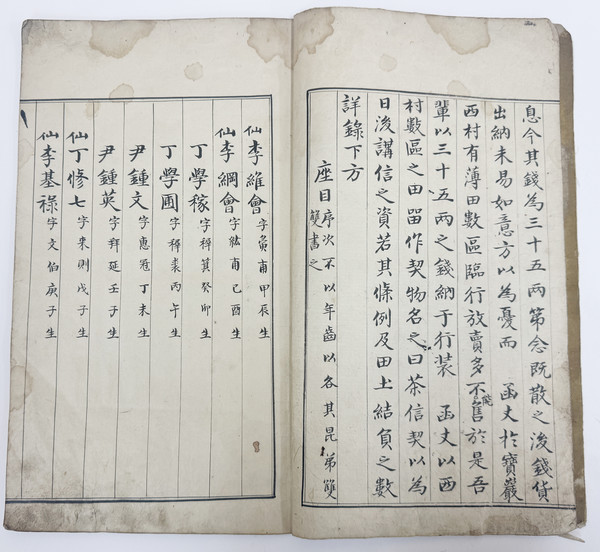 息今其錢為三十五兩第念既散之後錢貨
出納未易如意方以為憂而 函丈於寶巖
西村有薄田數區臨行放賣多不能售於是吾
輩以三十五兩之錢納于行装 函丈以西
村數區之田畱作契物名之曰茶信契以為
日後講信之資若其條例及田土結負之數
詳錄下方
座目 序次不以年齒以各其昆弟雙
雙書之
仙 李維會 字寅甫甲辰生
仙 李綱會 字紘甫己酉生
丁學稼 字穉箕癸卯生
丁學圃 字穉裘丙午生
尹鍾文 字惠冠丁未生
尹鍾英 字拜延壬子生
仙 丁修七 字来則戊子生
仙 李基祿 字文伯庚子生